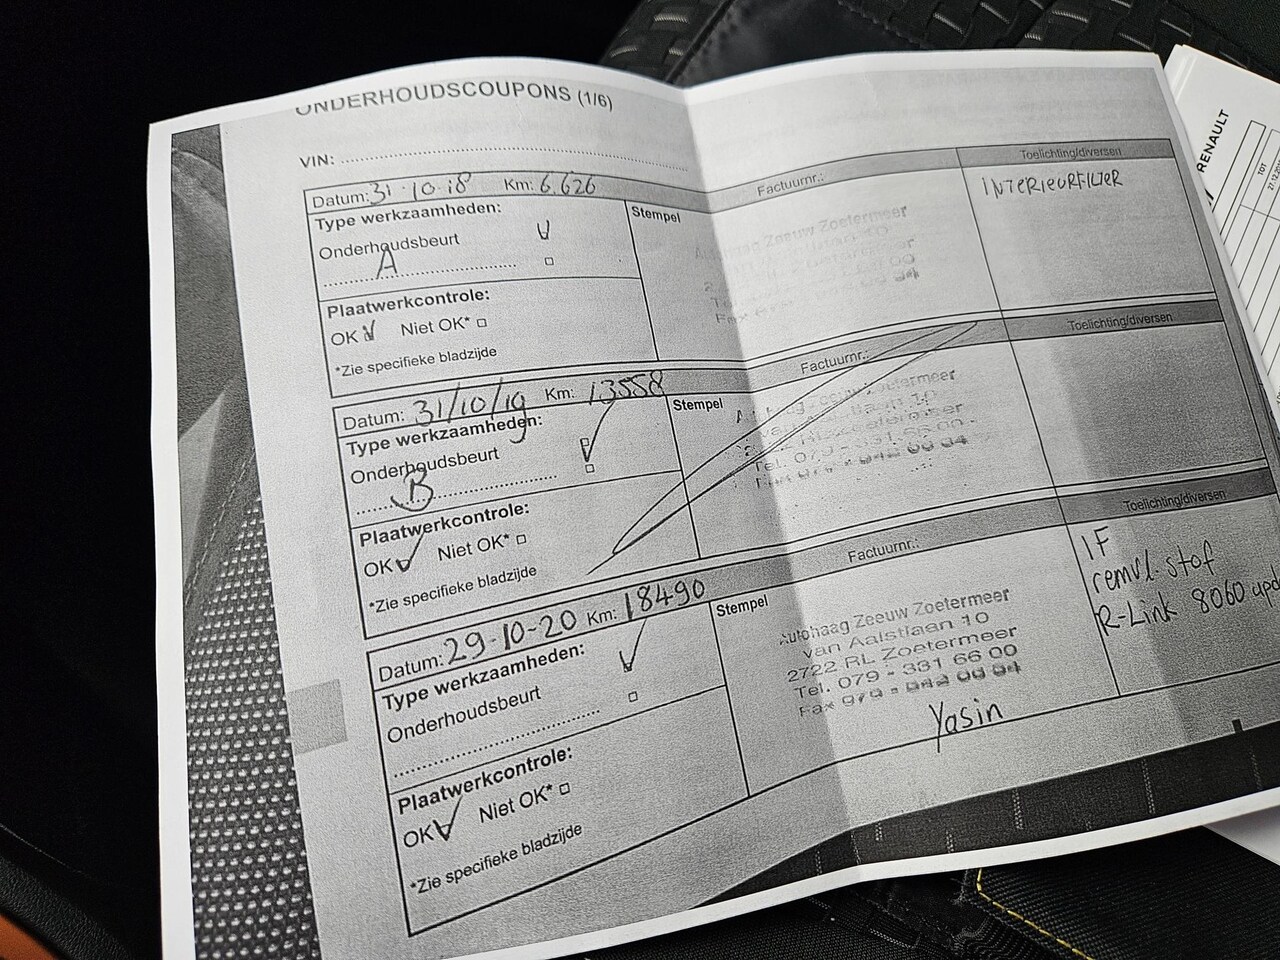 ONDERHOUDSCOUPONS (1/6)
VIN:
Datum: 31-10-18 Km: 6.626 Factuurnr.: Toelichting/diversen
Type werkzaamheden:
Onderhoudsbeurt
A
Stempel
Autohaag Zeeuw Zoetermeer
INTERIEURFILTER
Plaatwerkcontrole:
OK Niet OK*
*Zie specifieke bladzijde
Datum: 31/10/19 Km: 13558 Factuurnr.: Toelichting/diversen
Type werkzaamheden:
Onderhoudsbeurt
B
Stempel
Zeeuw Zoetermeer
Tel. 079 - 331 66 00
Plaatwerkcontrole:
OK Niet OK*
*Zie specifieke bladzijde
Datum: 29-10-20 Km: 18490 Factuurnr.: Toelichting/diversen
Type werkzaamheden:
Onderhoudsbeurt
Stempel
Autohaag Zeeuw Zoetermeer
van Aalstlaan 10
2722 RL Zoetermeer
Tel. 079 - 331 66 00
Yasin
IF
remvl. stof
R-Link 8060
Plaatwerkcontrole:
OK Niet OK*
*Zie specifieke bladzijde
RENAULT
TOT